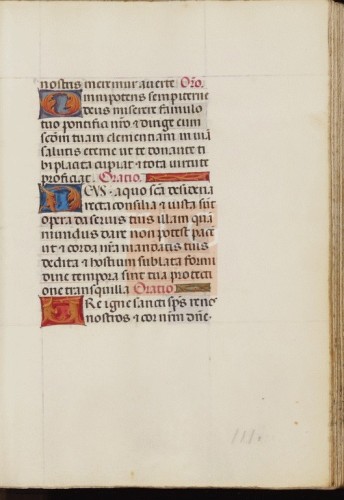 nostris meremur averte. Oro.
Omnipotens sempiterne
deus miserere famulo
tuo pontifici nr̄o & dirige eum
scd̄m tuam clementiam in uiā
salutis eterne ut te donante ti
bi placita cupiat & tota uirtute
proficiat. Oratio.
DEUS · a quo scā desideria
recta consilia & iusta sunt
opera da seruis tuis illam quā
mundus dare non potest pacē
ut & corda nr̄a mandatis tuis
dedita & hostium sublata formi
dine tempora sint tua protecti
one tranquilla Oratio
URe igne sancti sp̄s renes
nostros & cor nr̄m dn̄e ·